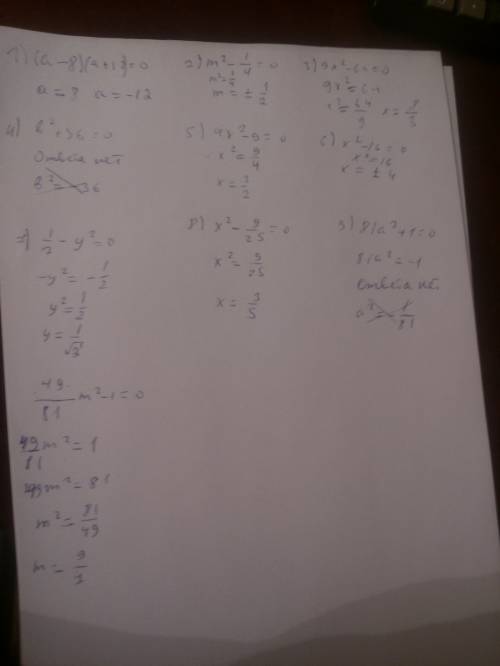 1) (a-8)(a+12)=0
a=8 a=-12
2) m²-1/4=0
m²=1/4
m=±1/2
3) 9x²-64=0
9x²=64
x²=64/9 x=8/3
4) b²+36=0
Ответа нет
b²=-36
5) 4x²-9=0
x²=9/4
x=3/2
6) x²-16=0
x²=16
x=±4
7) 1/2-y²=0
-y²=-1/2
y²=1/2
8) x²-9/25=0
x²=9/25
x=3/5
9) 81a²+1=0
81a²=-1
Ответа нет
a²=-1/81
49/81 m²-1=0
49/81 m²=1
49m²=81
m²=81/49
m=9/7